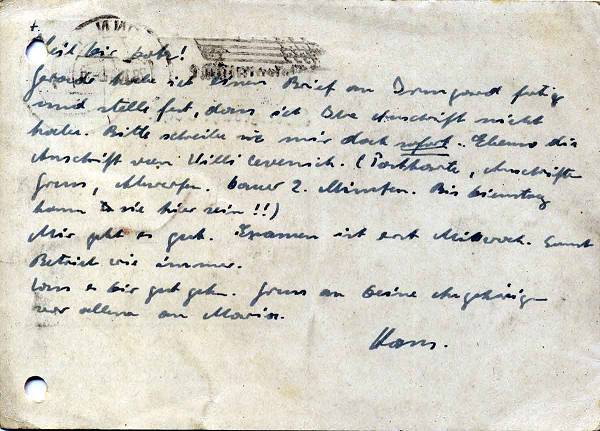 Gerade habe ich einen Brief an Irmgard fertig
und stelle fest, dass ich Ihre Anschrift nicht
habe. Bitte schreibe sie mir doch sofort. Ebenso die
Anschrift von Willi (Postkarte, Anschrift
Gruss, Einwerfen. Dauer 2. Minuten. Bis Dienstag
kann sie hier sein!!)
Mir geht es gut. Examen ist erst Mittwoch. Sonst
Betrieb wie immer.
Lass es Dir gut gehn. Gruss an Deine Angehörigen
vor allem an Maria.
Hans.